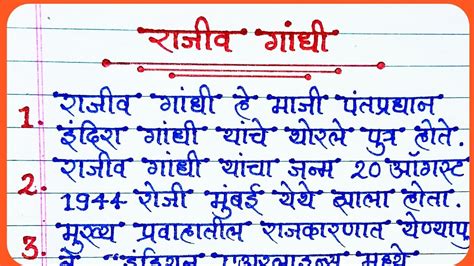 राजीव गांधी
1. राजीव गांधी हे माजी पंतप्रधान
इंदिरा गांधी यांचे थोरले पुत्र होते.
2. राजीव गांधी यांचा जन्म 20 ऑगस्ट
1944 रोजी मुंबई येथे झाला होता.
3. मुख्य प्रवाहातील राजकारणात येण्यापु